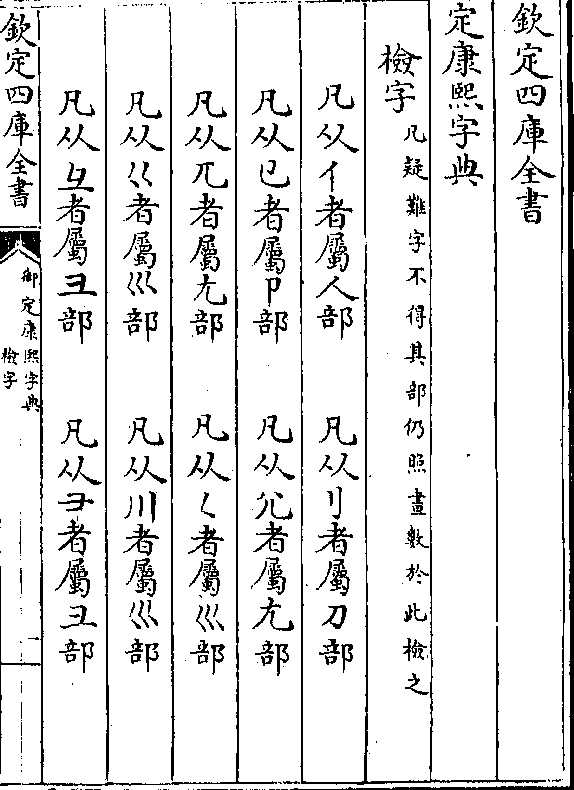 欽定四庫全書
定康熙字典
檢字 凡疑難字不得其部仍照畫數於此檢之
凡从亻者屬人部 凡从刂者屬刀部
凡从㔾者屬卩部 凡从尣者屬尢部
凡从兀者屬尢部 凡从𡿨者屬巛部
凡从巜者屬巛部 凡从川者屬巛部
凡从彑者屬彐部 凡从⺕者屬彐部
欽定四庫全書
御定康熙字典
檢字
一